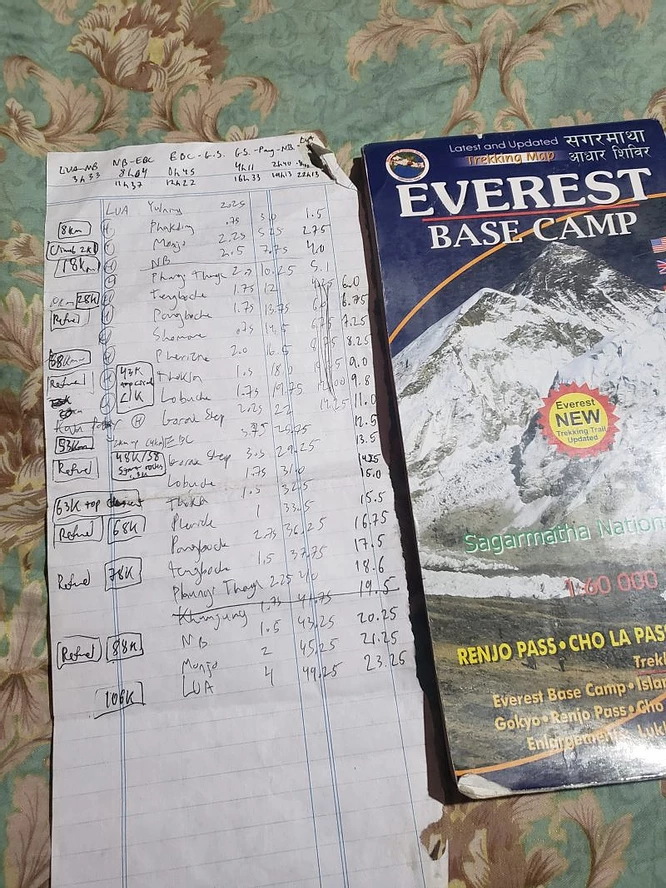 LUA-NB NB-EBC EBC-G.S. G.S-Pang-NB-LUA
3h33 8h04 0h45 4h11 2h40
11h37 12h22 16h33 19h13 22h13
LUA 2.025
8km H Phakding .75 3.0 1.5
Climb 2K H Monjo 2.25 5.25 2.75
18km H NB 2.5 7.75 4.0
H Phung Thanga 2.5 10.25 5.1
28K H Tengboche 1.75 12 6.0
Refuel H Pangboche 1.75 13.75 6.75
Shomare .75 14.5 7.25
38km H Pheriche 2.0 16.5 8.25
Refuel H 43K Thokla 1.5 18.0 9.0
H Lobuche 1.75 19.75 9.8
H Gorak Shep 2.25 22 11.0
53km EBC 3.75 25.75 12.5
Refuel 48K/58 Gorak Shep 3.5 29.25 13.5
Lobuche 1.75 31.0
63K top descent Thokla 1.5 32.5 15.0
Refuel 68K Pheriche 1 33.5 15.5
Pangboche 2.75 36.25 16.75
Refuel 78K Tengboche 1.5 37.75 17.5
Phunngi Thanga 2.25 40 18.6
Khumjung 1.75 41.75 19.5
Refuel 88K NB 1.5 43.25 20.25
Monjo 2 45.25 21.25
106K LUA 4 49.25 23.25
Latest and Updated सगरमाथा
Trekking Map आधार शिविर
EVEREST
BASE CAMP
Everest
NEW
Trekking Trail
Updated
Sagarmatha Nation
1:60 000
RENJO PASS•CHO LA PASS
Trek
Everest Base Camp•Islan
Gokyo•Renjo Pass•Cho
Enlargements: Luk